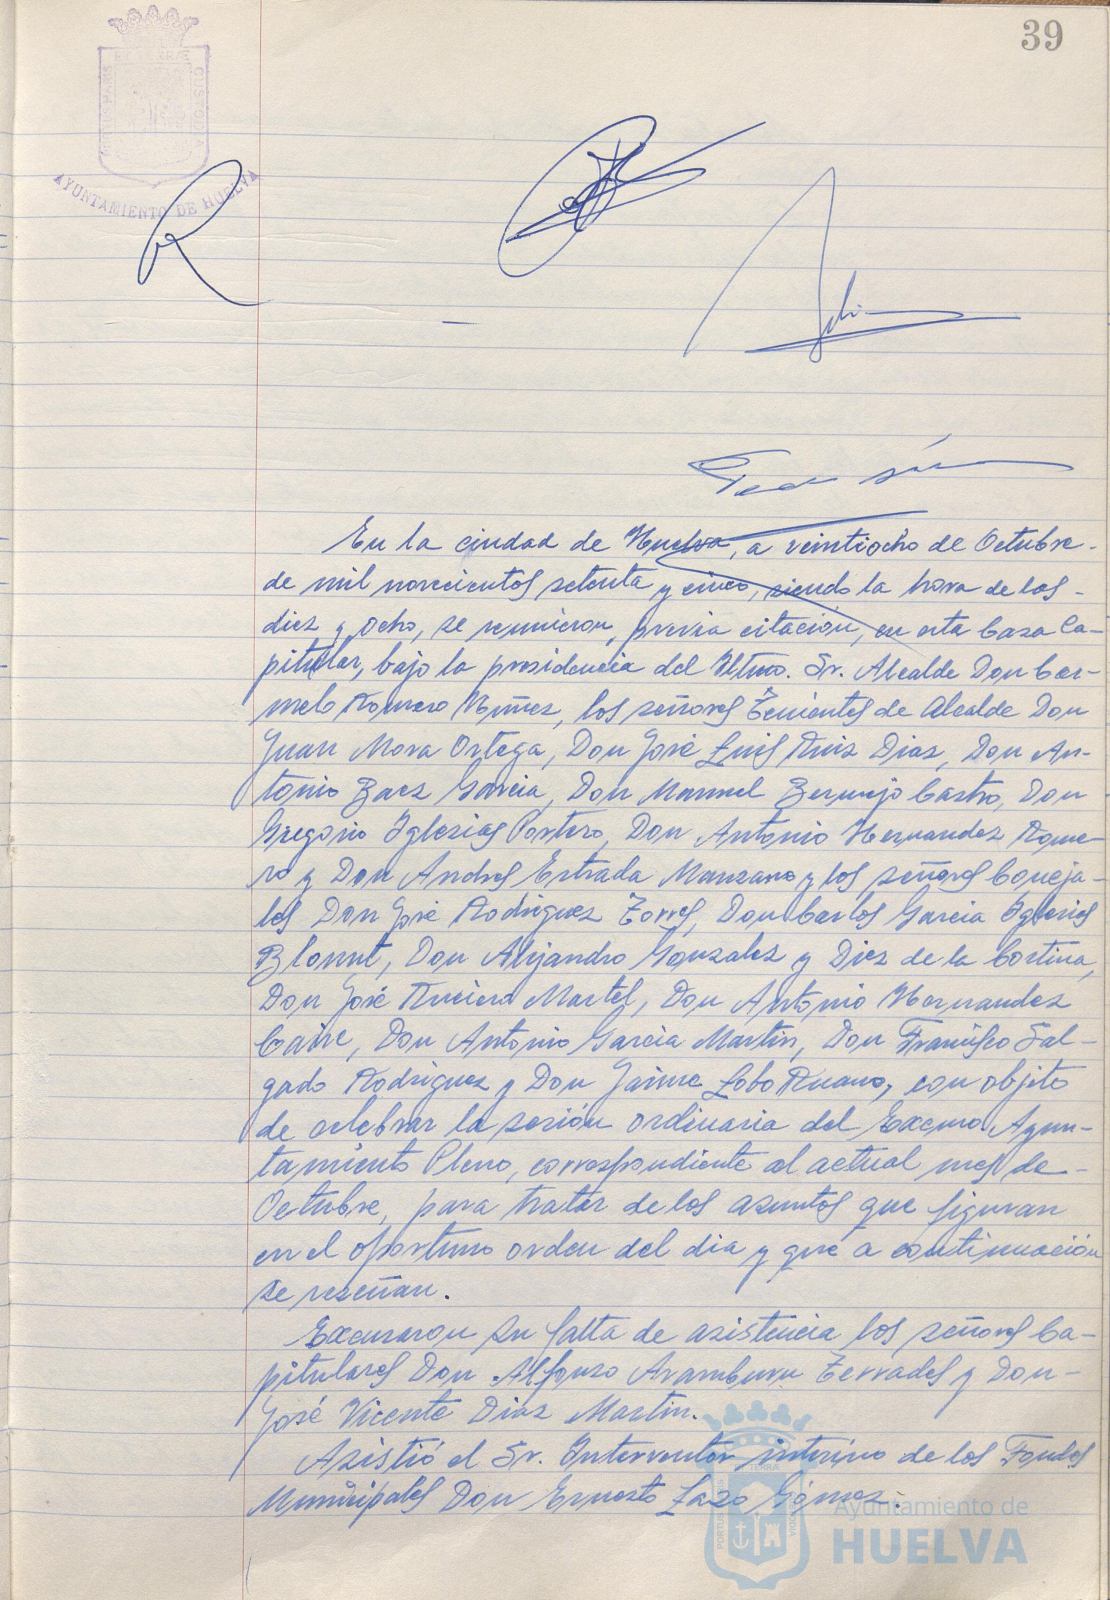 39
PORTUS MARIS ET TERRÆ CUSTODIA
AYUNTAMIENTO DE HUELVA
En la ciudad de Huelva, a veintiocho de Octubre-
de mil novecientos setenta y cinco, siendo la hora de las-
diez y ocho, se reunieron, previa citación, en esta Casa Ca-
pitular, bajo la presidencia del Iltmo. Sr. Alcalde Don Car-
melo Romero Núñez, los señores Tenientes de Alcalde Don
Juan Mora Ortega, Don José Luis Ruiz Diaz, Don An-
tonio Baez Garcia, Don Manuel Bermejo Castro, Don
Gregorio Iglesias Portero, Don Antonio Hernandez Rome-
ro y Don Andres Estrada Manzano y los señores Conceja-
les Don José Rodriguez Torres, Don Carlos Garcia Iglesias
Don Alejandro Gonzalez y Diez de la Cortina,
Don José Martel, Don Antonio Hernandez
Don Antonio Garcia Martin, Don Francisco Sal-
gado Rodriguez y Don Jaime Lobo Ruano, con objeto
de celebrar la sesión ordinaria del Excmo Ayun-
tamiento Pleno, correspondiente al actual mes de-
Octubre, para tratar de los asuntos que figuran
en el oportuno orden del dia y que a continuación
se reseñan.
Excusaron su falta de asistencia los señores Ca-
pitulares Don Alfonso Aramburu Terrades y Don-
José Vicente Diaz Martin.
Asistió el Sr. Interventor interino de los Fondos
Municipales Don Ernesto Lazo Gómez.
Ayuntamiento de
HUELVA